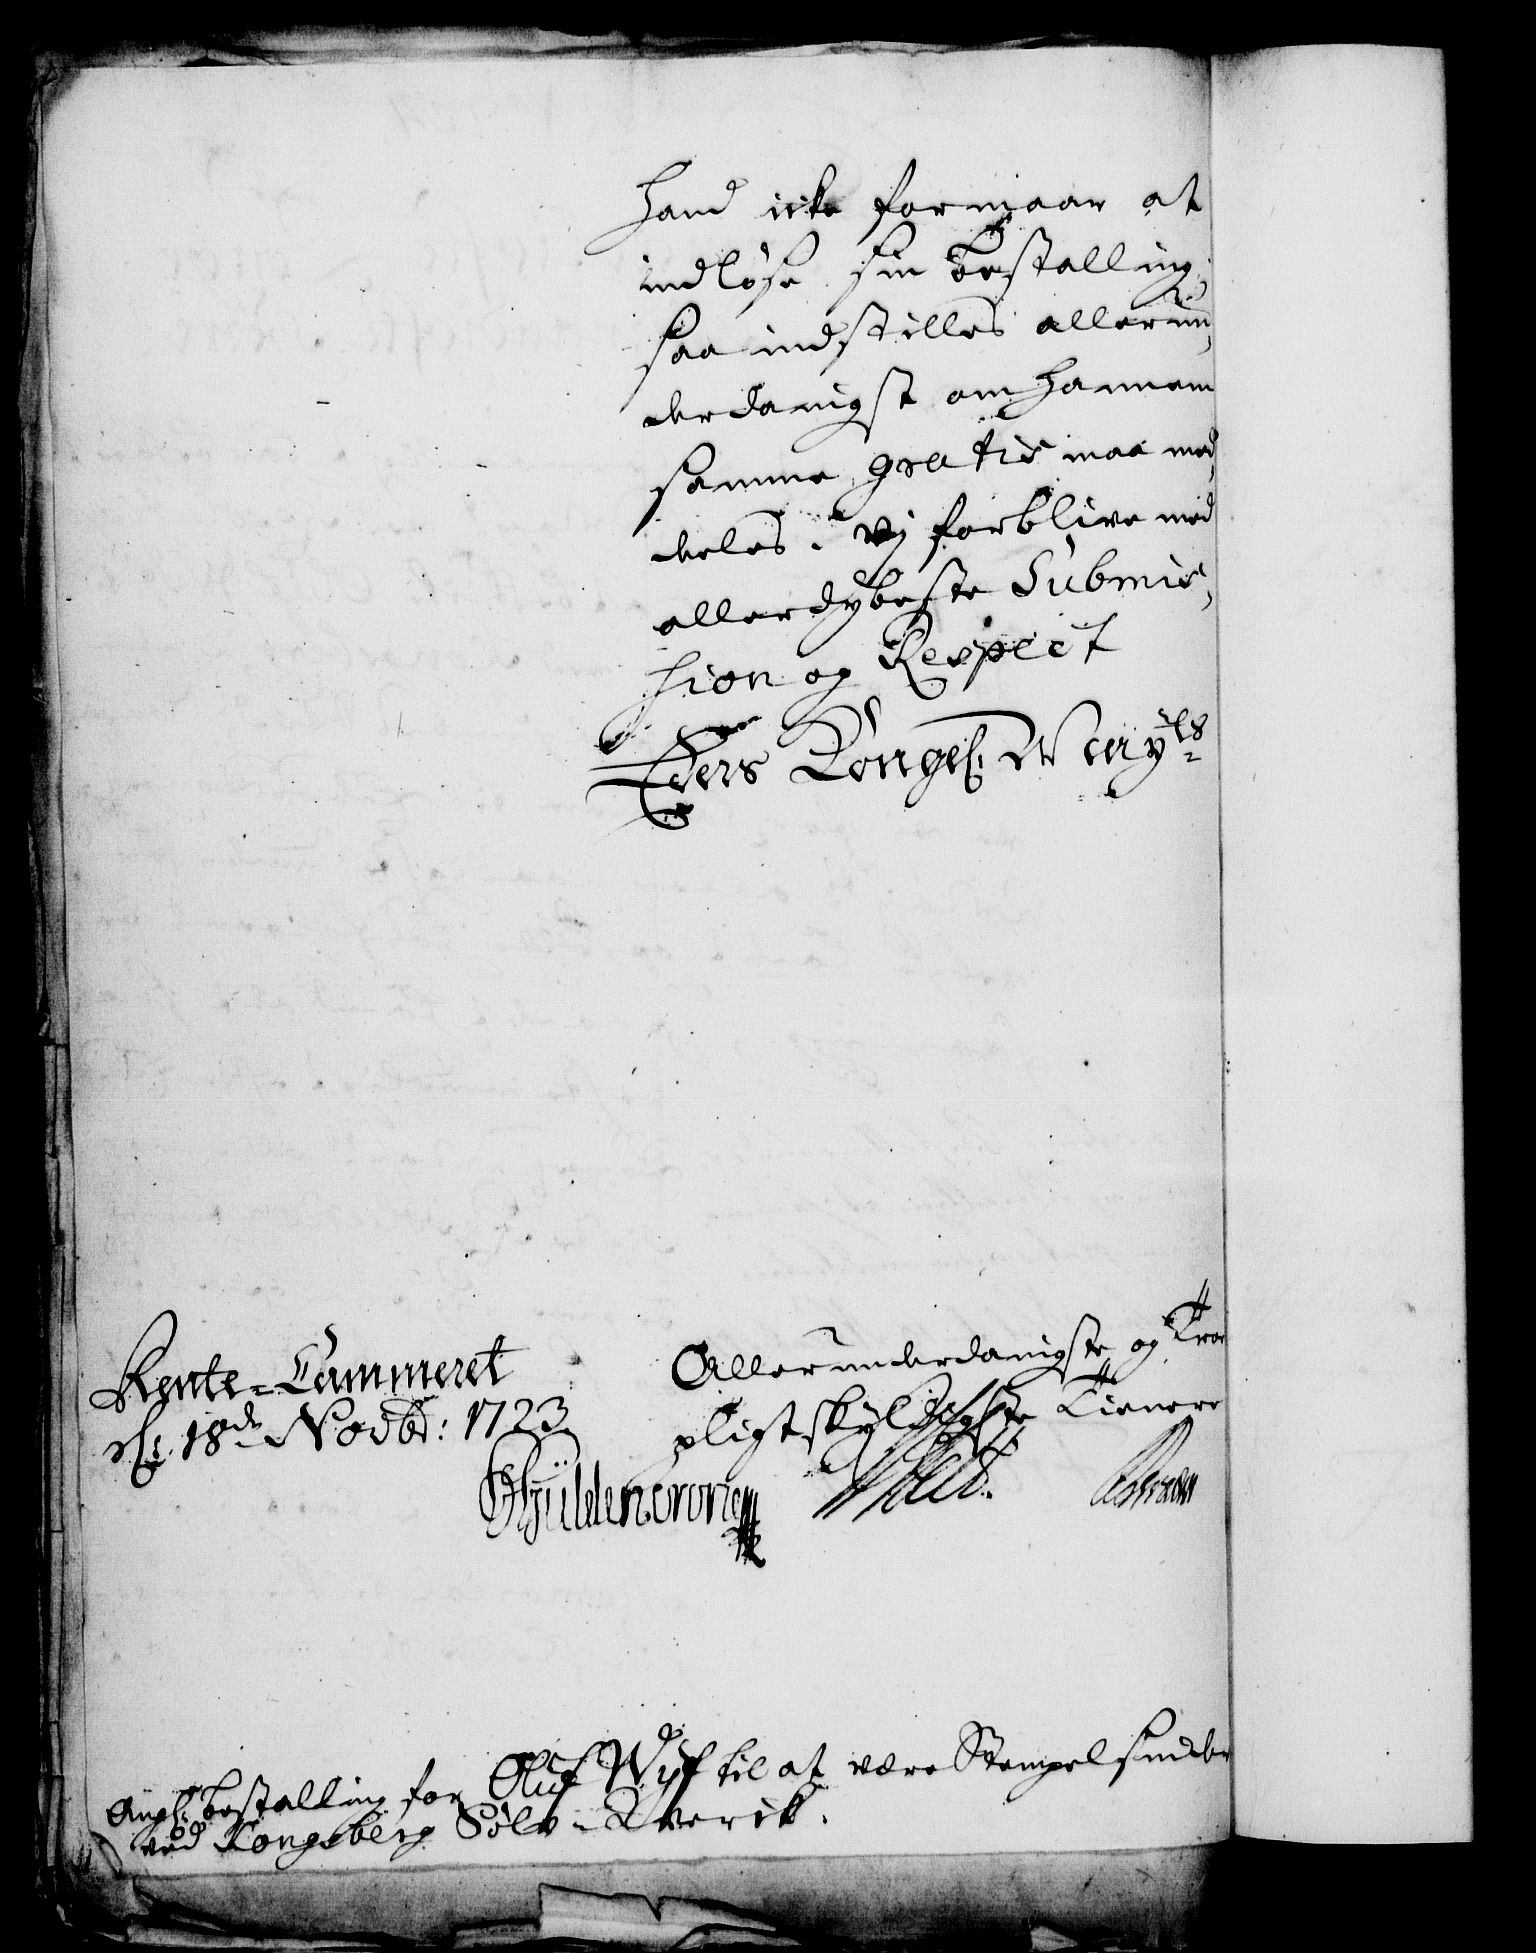 hand icke formaar at
indløse sin Bestalling,
saa indstilles allerun,
derdanigst om hannem
samme gratis maa med,
deeles. Vj forblive med
allerdybeste Submis,
sion og Respect
Eders Kongel: May:ts
Rente-Cammeret
d: 18de Novbr: 1723.
Allerunderdanigste og Troe
pligtskyldigste Tienere
Gÿldencrone
Ang: Bestalling for Oluf Wijf til at være Stempelsnider
ved Kongsberg Sølv-Werck.